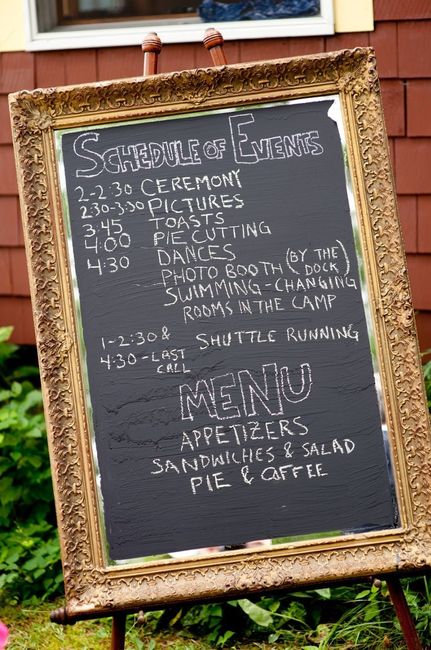 SCHEDULE OF EVENTS
2-2:30 CEREMONY
2:30-3:00 PICTURES
3:45 TOASTS
4:00 PIE CUTTING
4:30 DANCES
PHOTO BOOTH (BY THE DOCK)
SWIMMING-CHANGING
ROOMS IN THE CAMP
1-2:30 & SHUTTLE RUNNING
4:30-LAST
CALL
MENU
APPETIZERS
SANDWICHES & SALAD
PIE & COFFEE